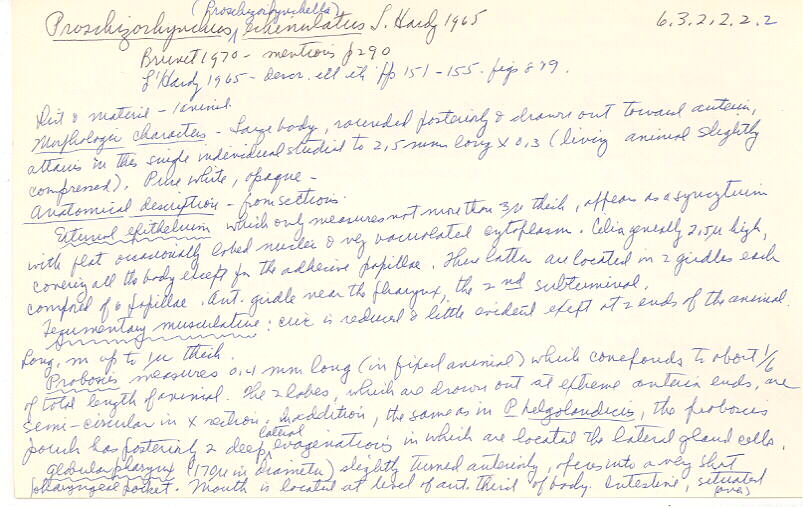 (Proschizorhynchella)
Proschizorhynchus, echinulatus L'Hardy 1965 6.3.2.2.2.2
Brunet 1970 - mentions p290
L'Hardy 1965 - descr. ill. pp 151-155. figs 8 & 9.
Dist & material - 1 animal
Morphologic characters - Large body, rounded posteriorly & drawn out toward anterior,
attains in the single individual studied to 2,5 mm long x 0.3 (living animal slightly
compressed). Pure white, opaque -
Anatomical description - from sections.
External epithelium which only measures not more than 3µ thick, appears as a syncytium
with flat occasionally lobed nuclei & very vacuolated cytoplasm. Cilia generally 2,5µ high,
covering all the body except for the adhesive papillae. These latter are located in 2 girdles each
comprised of 6 papillae. Ant. girdle near the pharynx, the 2nd subterminal.
Tegumentary musculature: circ is reduced & little evident exept at 2 ends of the animal.
Long. m up to 1µ thick.
Proboscis measures 0.4 mm long (in fixed animal) which coresponds to abort 1/6
of total length of animal. The 2 lobes, which are drawn out at extreme anterior ends, are
semi-circular in x section; In addition, the same as in P helgolandicus, the proboscis
pouch has posteriorly 2 deep lateral evaginations in which are located the lateral gland cells.
globular pharynx (170µ in diameter) slightly turned anteriorly, opens into a very short
pharyngeal pocket. Mouth is located at level of ant. third of body. Intestine, situated
over